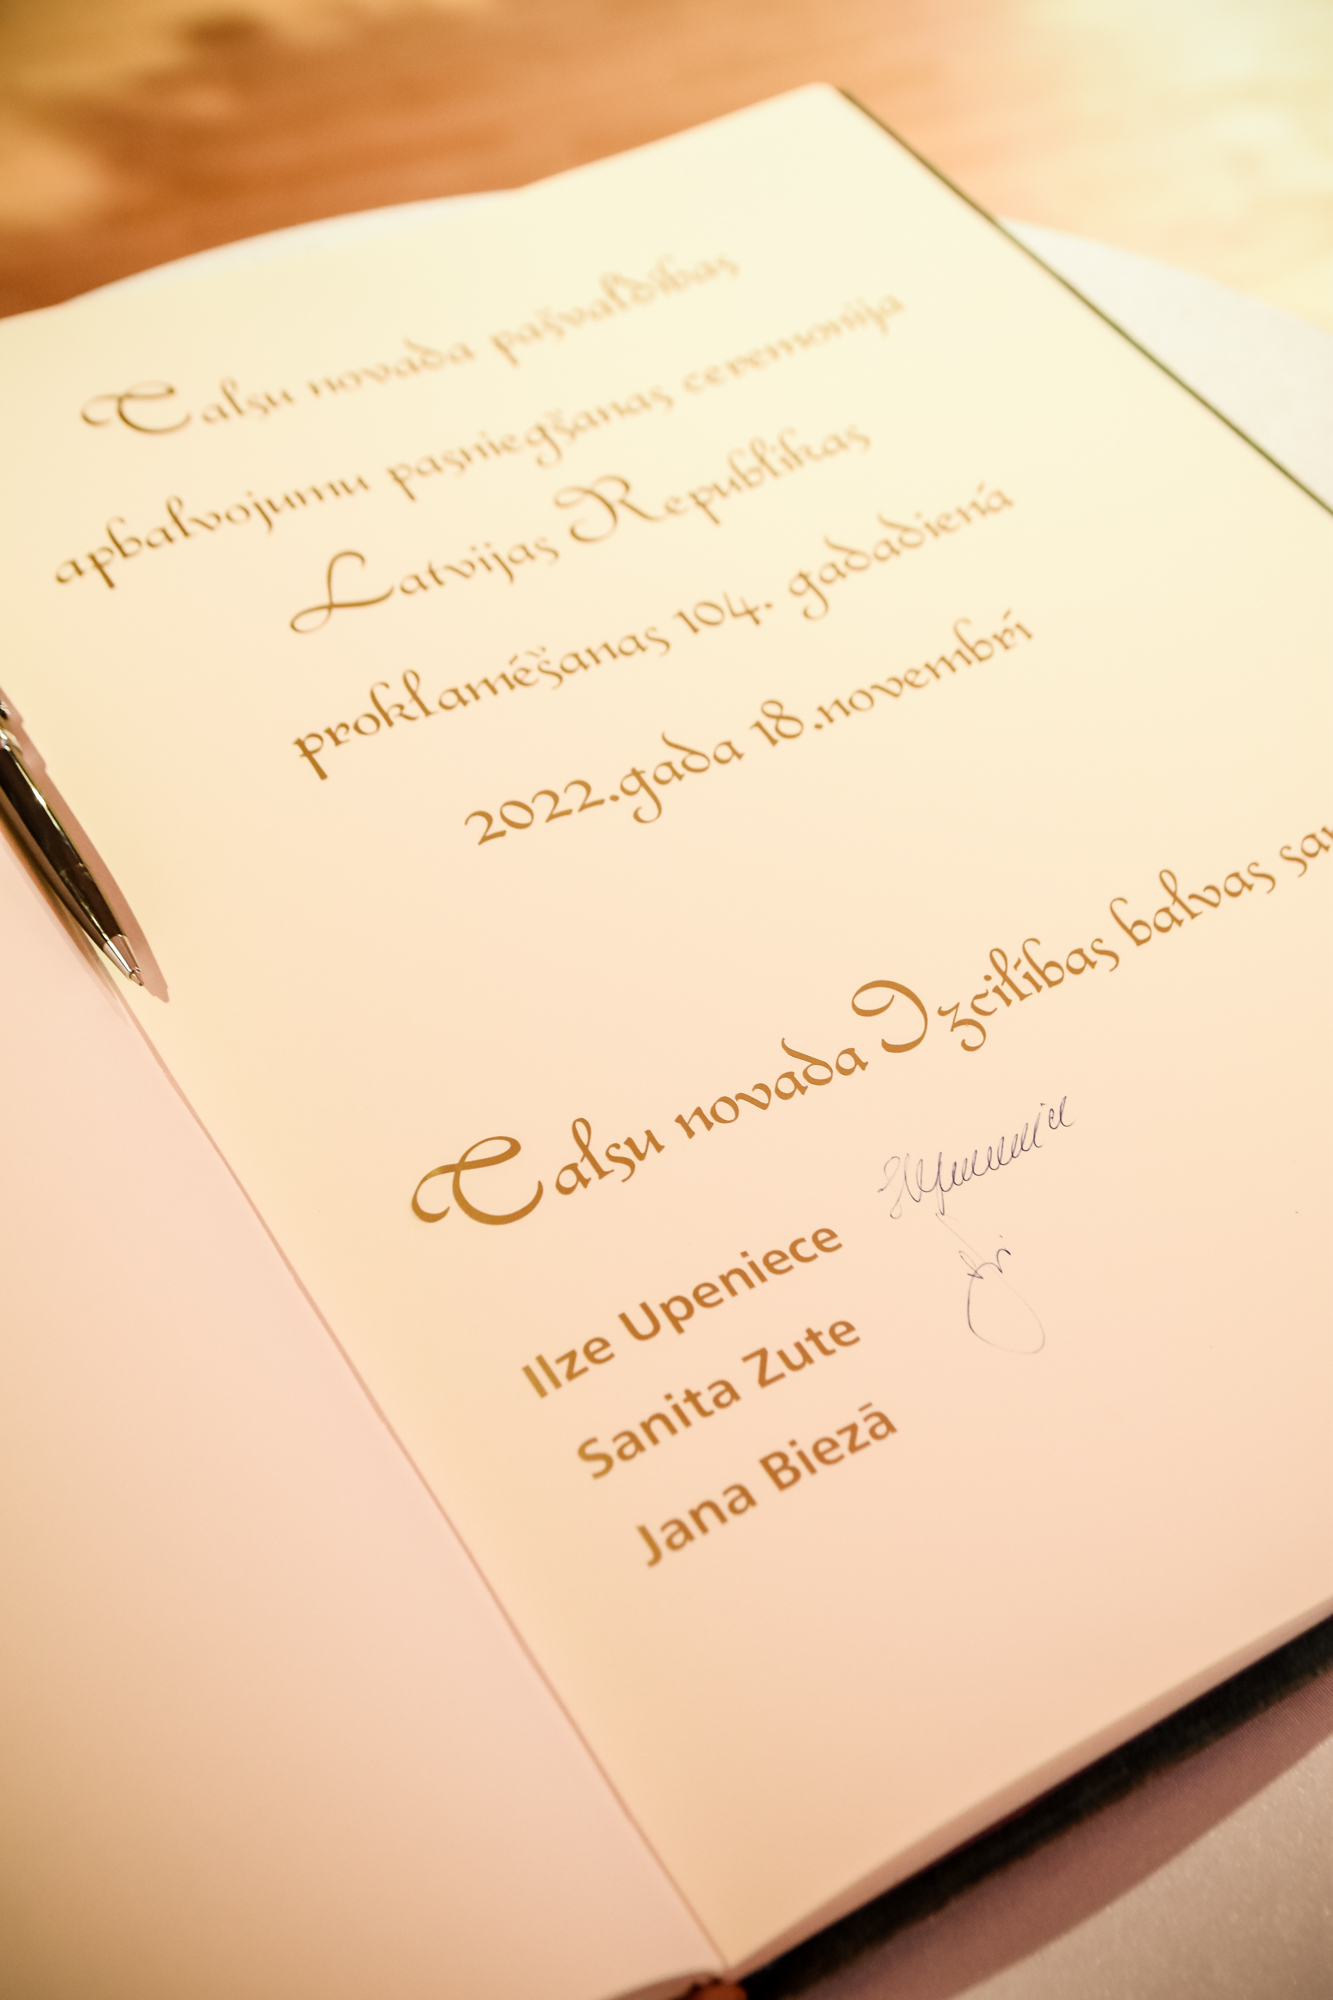 Talsu novada pašvaldības
apbalvojumu pasniegšanas ceremonija
Latvijas Republikas
proklamēšanas 104. gadadienā
2022.gada 18.novembrī
Talsu novada Izcilības balvas
Ilze Upeniece
Sanita Zute
Jana Biezā